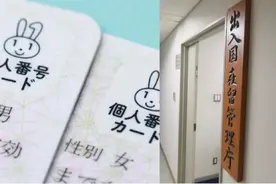 個人番号
カード
男
効
個人番号
カード
性別 女
まで
出入国在留管理庁